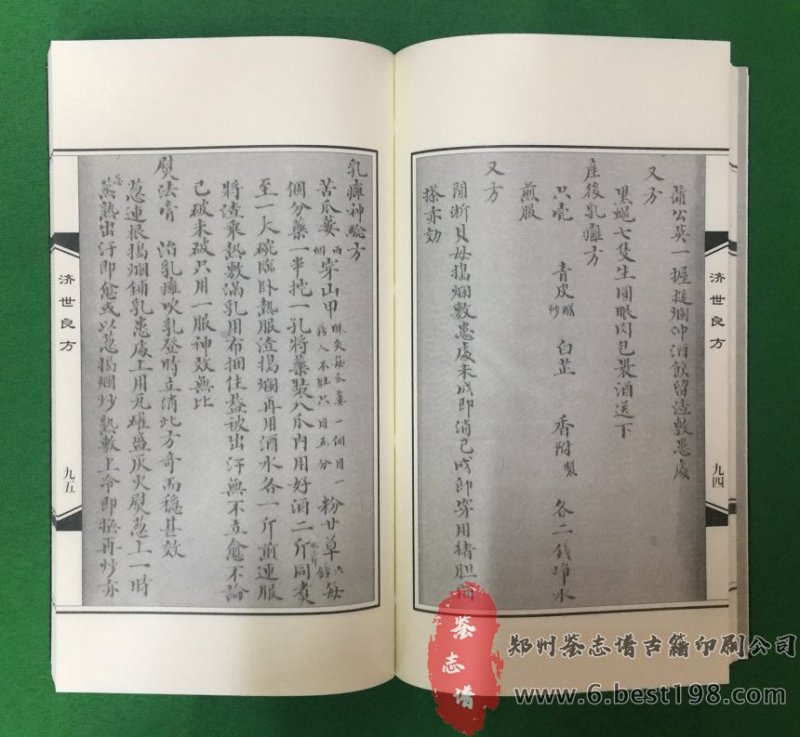 蒲公英一握搥爛冲酒飲留渣敷患處
又方
黑蝿七隻生圓眼肉包裹酒送下
産後乳癰方
只壳 青皮醋炒 白芷 香附製 各二錢净水
煎服
又方
閒浙貝母搗爛敷患處未成即消已成即穿用猪胆
搽亦効
济世良方
九四
乳癰神驗方
苦瓜蔞兩個 穿山甲酥炙每瓜蔞一個用一 人不壯只用五分 粉甘草六錢每
個分藥一半挖一孔將藥裝入瓜内用好酒二斤同煮
至一大碗臨卧熱服渣搗爛再用酒水各一斤煎連服
將渣乘熱敷滿乳用布捆住盖被出汗無不立愈不論
已破未破只用一服神效無比
熨法膏 治乳癰吹乳登時立消此方奇而穩甚效
葱連根搗爛鋪乳患處上用瓦罐盛灰火熨葱上一時
蒸熱出汗即愈或以葱搗爛炒熟敷上冷即换再炒亦
济世良方
九五
鉴志谱
郑州鉴志谱古籍印刷公司
www.6.best198.com